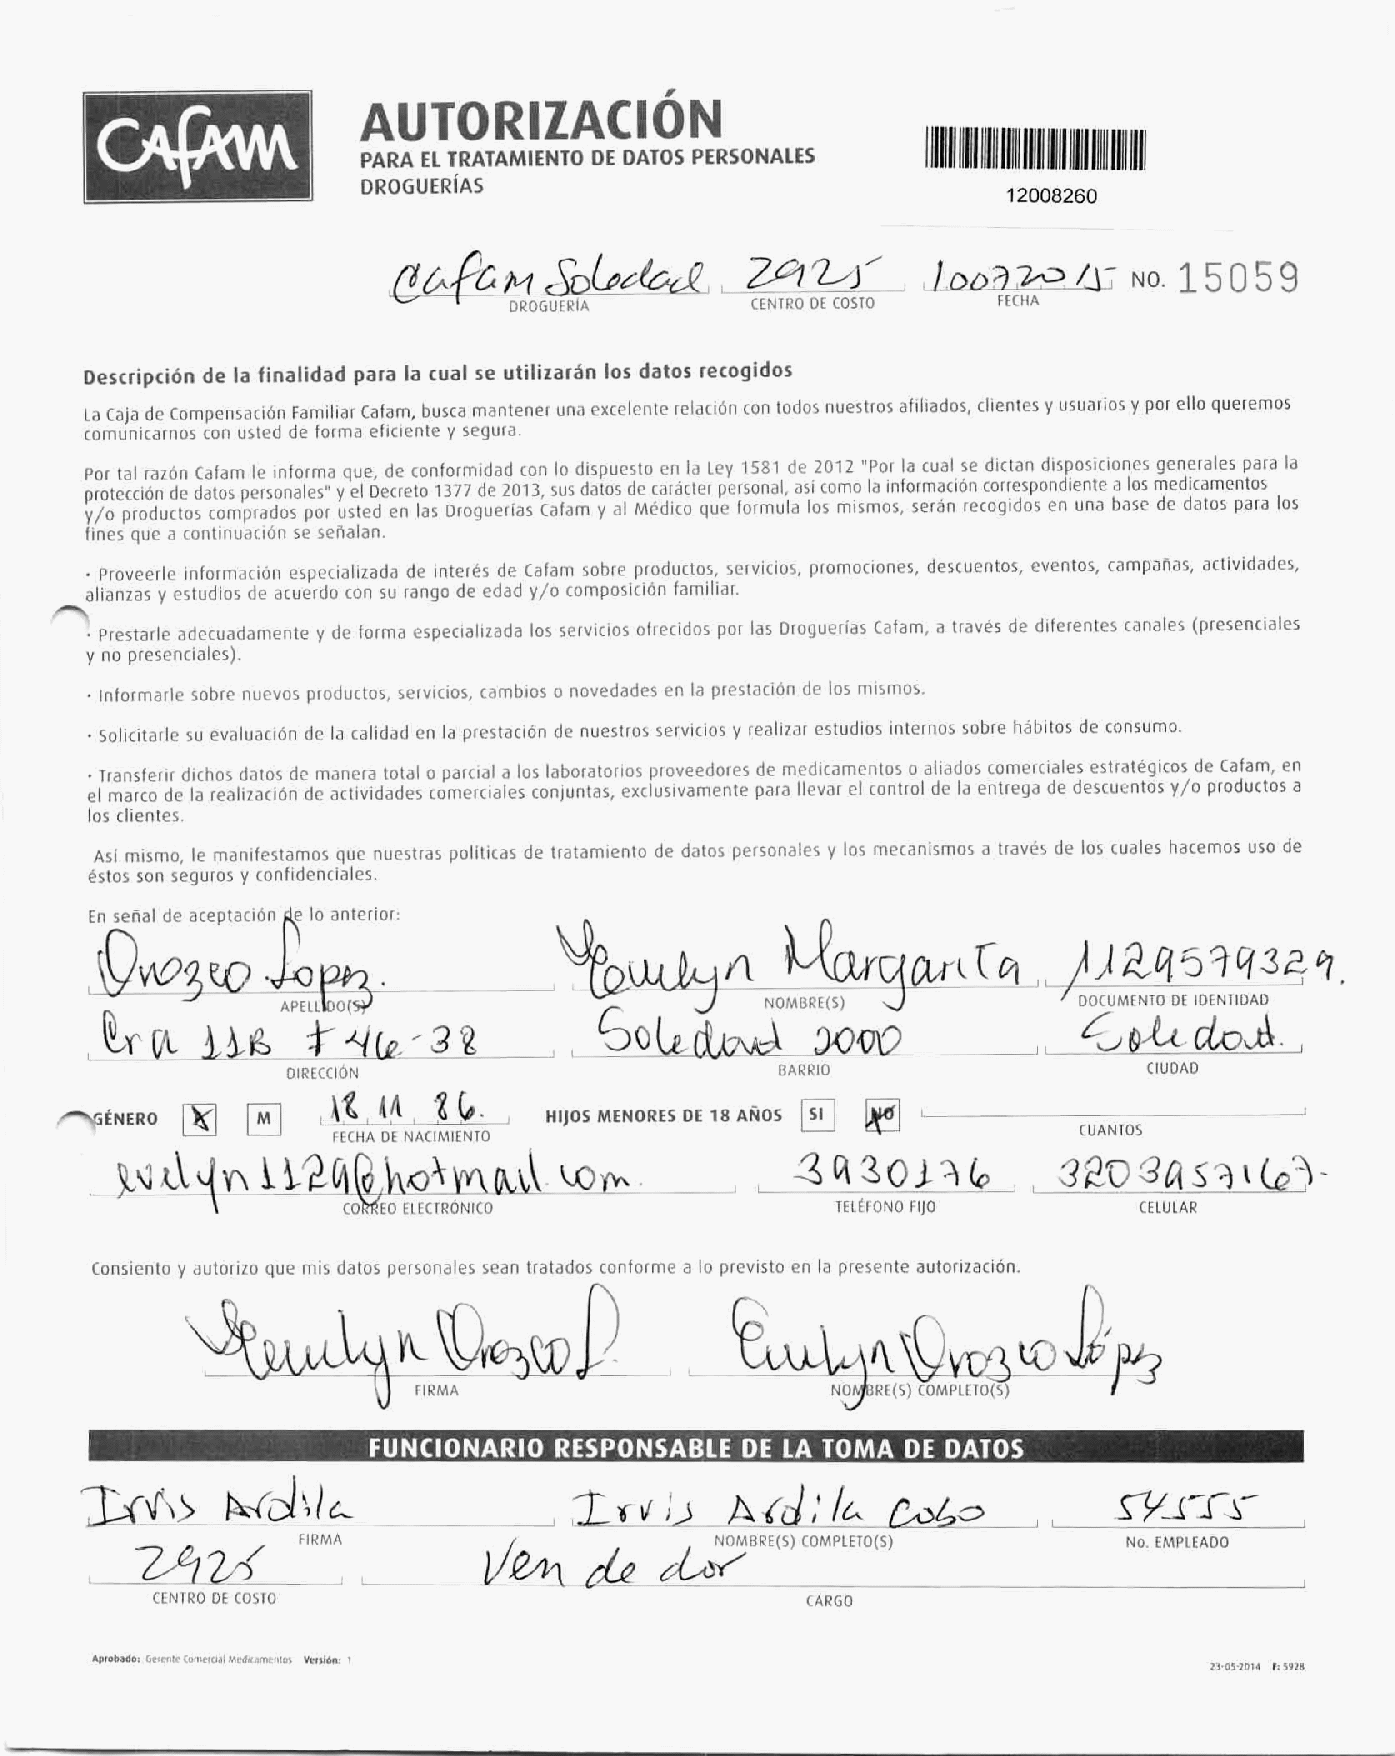 CAFAM
AUTORIZACIÓN
PARA EL TRATAMIENTO DE DATOS PERSONALES
DROGUERÍAS
12008260
Cafam Soledad 2925 10072015 NO. 15059
DROGUERÍA CENTRO DE COSTO FECHA
Descripción de la finalidad para la cual se utilizarán los datos recogidos
La Caja de Compensación Familiar Cafam, busca mantener una excelente relación con todos nuestros afiliados, clientes y usuarios y por ello queremos
comunicarnos con usted de forma eficiente y segura.
Por tal razón Cafam le informa que, de conformidad con lo dispuesto en la Ley 1581 de 2012 "Por la cual se dictan disposiciones generales para la
protección de datos personales" y el Decreto 1377 de 2013, sus datos de carácter personal, así como la información correspondiente a los medicamentos
y/o productos comprados por usted en las Droguerías Cafam y al Médico que formula los mismos, serán recogidos en una base de datos para los
fines que a continuación se señalan.
· Proveerle información especializada de interés de Cafam sobre productos, servicios, promociones, descuentos, eventos, campañas, actividades,
alianzas y estudios de acuerdo con su rango de edad y/o composición familiar.
· Prestarle adecuadamente y de forma especializada los servicios ofrecidos por las Droguerías Cafam, a través de diferentes canales (presenciales
y no presenciales).
· Informarle sobre nuevos productos, servicios, cambios o novedades en la prestación de los mismos.
· Solicitarle su evaluación de la calidad en la prestación de nuestros servicios y realizar estudios internos sobre hábitos de consumo.
· Transferir dichos datos de manera total o parcial a los laboratorios proveedores de medicamentos o aliados comerciales estratégicos de Cafam, en
el marco de la realización de actividades comerciales conjuntas, exclusivamente para llevar el control de la entrega de descuentos y/o productos a
los clientes.
Así mismo, le manifestamos que nuestras políticas de tratamiento de datos personales y los mecanismos a través de los cuales hacemos uso de
éstos son seguros y confidenciales.
En señal de aceptación de lo anterior:
Orozco Lopez. Evelyn Margarita 1129579329.
APELLIDO(S) NOMBRE(S) DOCUMENTO DE IDENTIDAD
Cra 11B # 46-38 Soledad 2000 Soledad.
DIRECCIÓN BARRIO CIUDAD
GÉNERO X M 18 11 86. HIJOS MENORES DE 18 AÑOS SI NO
FECHA DE NACIMIENTO CUANTOS
evelyn1129@hotmail.com. 3930176 3203957167-
CORREO ELECTRÓNICO TELÉFONO FIJO CELULAR
Consiento y autorizo que mis datos personales sean tratados conforme a lo previsto en la presente autorización.
Evelyn Orozco L. Evelyn Orozco López
FIRMA NOMBRE(S) COMPLETO(S)
FUNCIONARIO RESPONSABLE DE LA TOMA DE DATOS
Irvis Ardila Irvis Ardila Cobo 54555
FIRMA NOMBRE(S) COMPLETO(S) No. EMPLEADO
2925 Vendedor
CENTRO DE COSTO CARGO
Aprobado: Gerente Comercial Medicamentos Versión: 1
23-05-2014 F: 5928